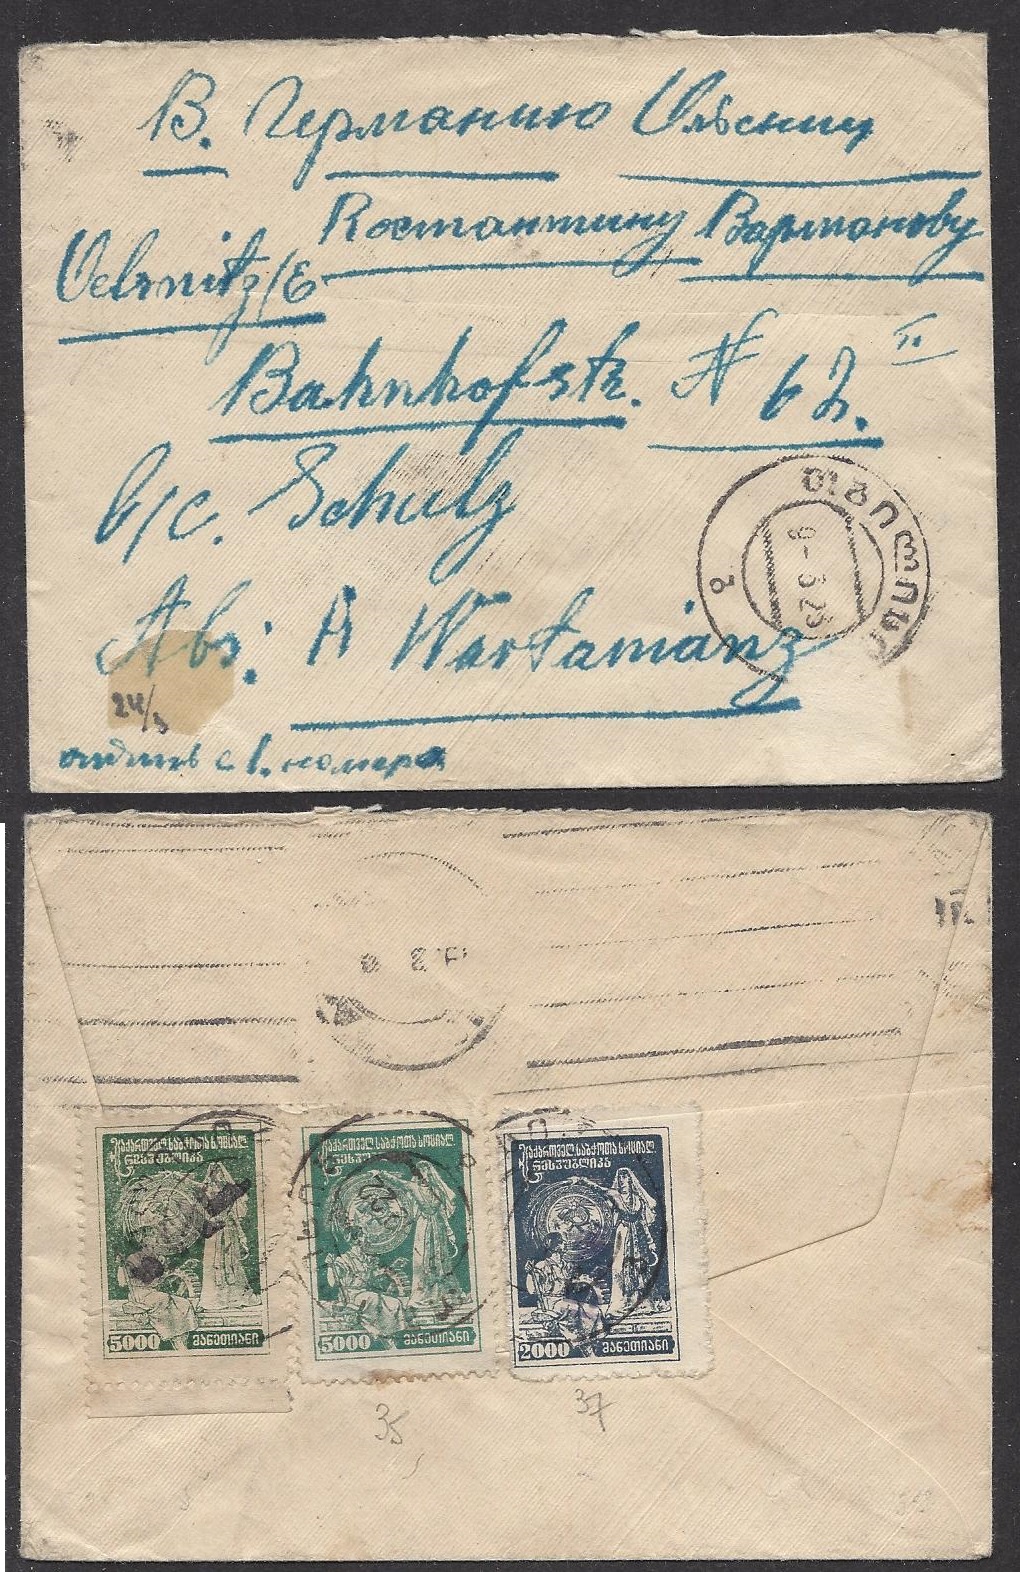 В. Германию Ольсниц
Костантину Вартанову
Oelsnitz/E
Bahnhofstr. N 62. II
b/c. Schulz
Abs: A Wartamanz
24/3
с 1. номера
ᲗᲑᲘᲚᲘᲡᲘ
9-3 23
საქართველ. საბჭოთა სოციალ.
რესპუბლიკა
5000 მანეთიანი
საქართველ. საბჭოთა სოციალ.
რესპუბლიკა
5000 მანეთიანი
საქართველ. საბჭოთა სოციალ.
რესპუბლიკა
2000 მანეთიანი
35
37